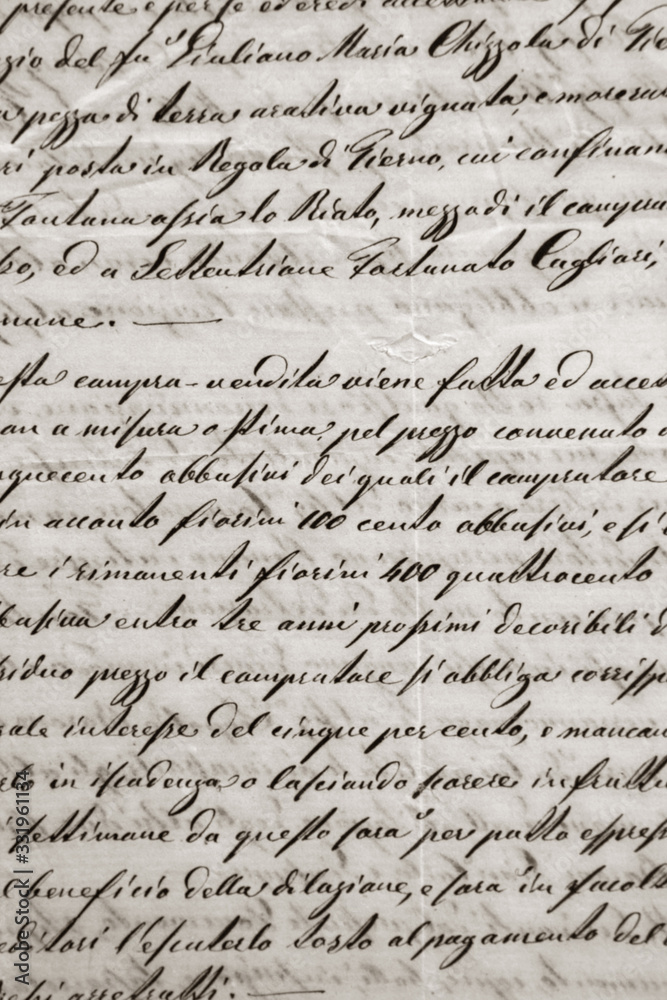 presente e per se ed eredi
gio del fu Giuliano Maria Chizzola di Tie
a pezza di terra arativa vignata, e morera
ri posta in Regola di Tierno, cui confinan
Fontana ossia lo Riato, mezzodi il compra
ro, ed a Settentrione Fortunato Cagliari,
mune. —
esta compra-vendita viene fatta ed acce
on a misura o stima, pel prezzo convenuto
nquecento abbusivi dei quali il compratore
in acconto fiorini 100 cento abbusivi, e si
re i rimanenti fiorini 400 quattrocento
busiva entro tre anni prossimi decoribili d
siduo prezzo il compratore si obbliga corrisp
rale interesse del cinque per cento, e mancan
in iscadenza o lasciando scorere infrutt
i settimane da questo sara' per patto espres
l beneficio della dilazione, e sara' in facolt
editori l'escuterlo tosto al pagamento del
chi arretratti. —
Adobe Stock | #331961134